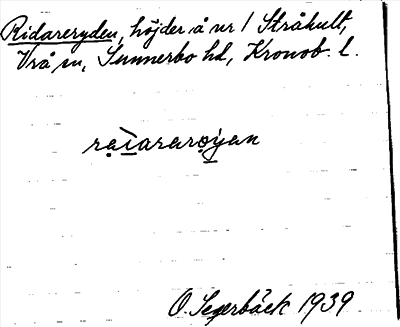 Ridareryden, höjder å nr 1 Stråkult,
Vrå sn, Sunnerbo hd, Kronob. l.
O. Segerbäck 1939